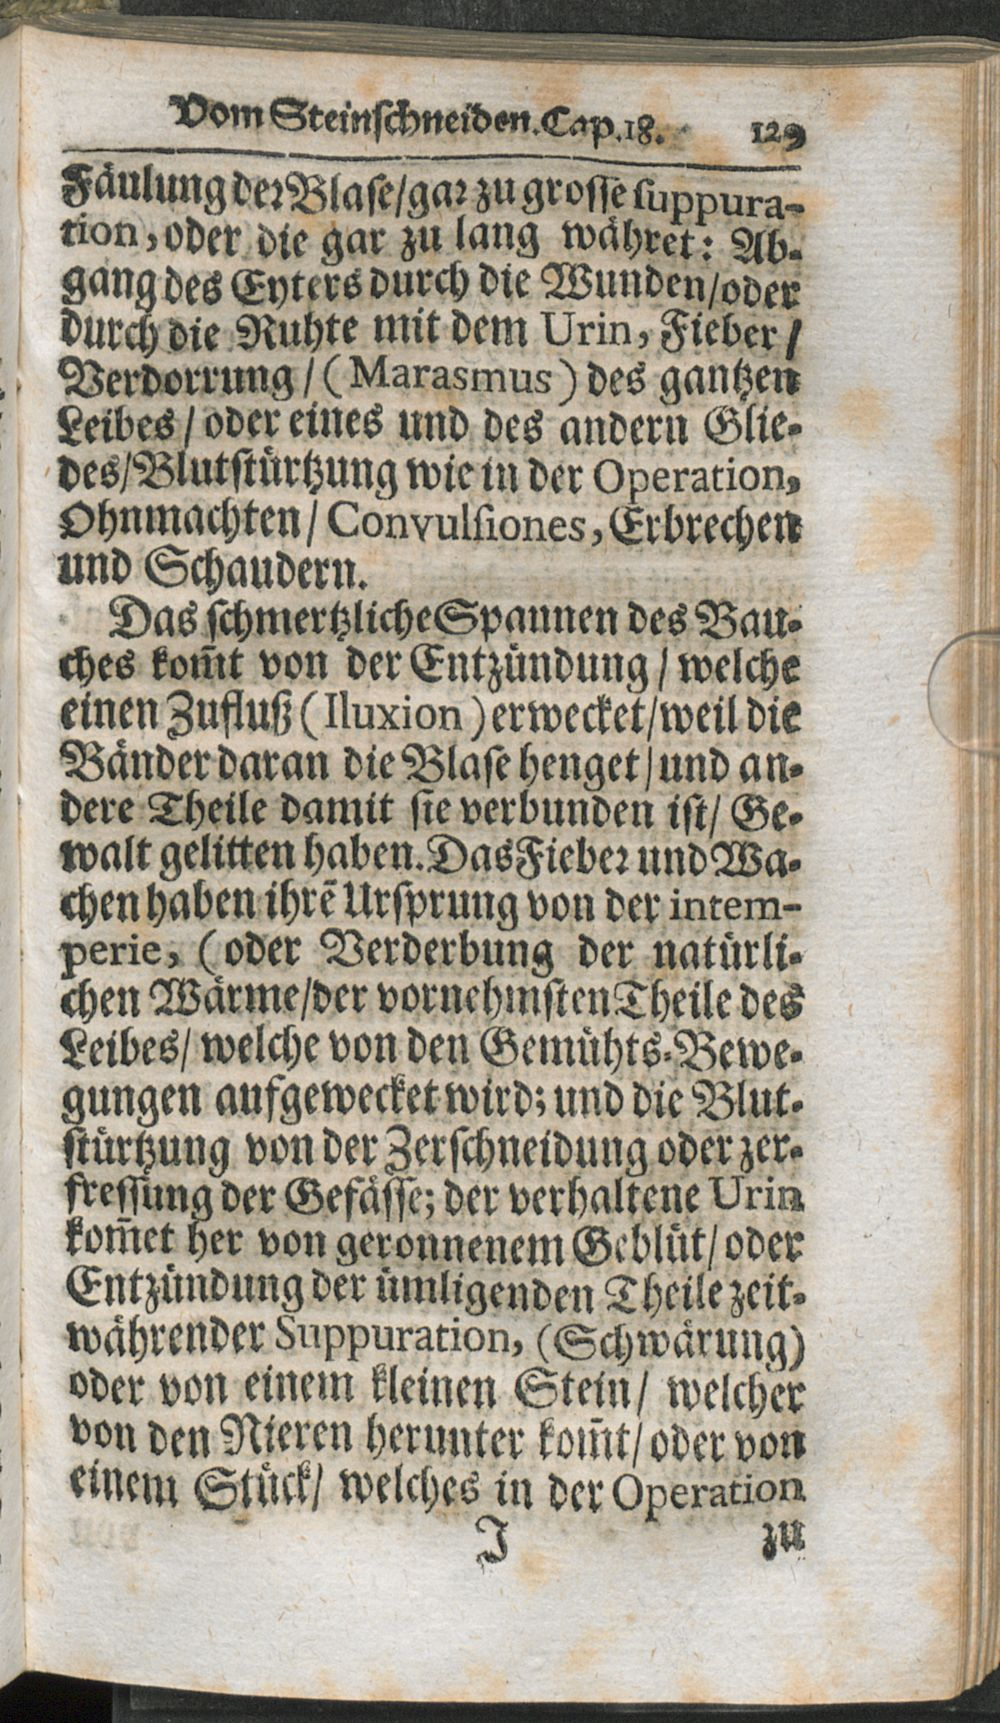 Vom Steinschneiden. Cap. 18. 129
Fäulung der Blase/gar zu grosse suppura-
tion, oder die gar zu lang währet: Ab-
gang des Eyters durch die Wunden/oder
durch die Ruhte mit dem Urin, Fieber/
Verdorrung/(Marasmus) des gantzen
Leibes/oder eines und des andern Glie-
des/Blutstürtzung wie in der Operation,
Ohnmachten/Convulsiones, Erbrechen
und Schaudern.
Das schmertzliche Spannen des Bau-
ches kom̃t von der Entzündung/welche
einen Zufluß (Iluxion) erwecket/weil die
Bänder daran die Blase henget/und an-
dere Theile damit sie verbunden ist/Ge-
walt gelitten haben. Das Fieber und Wa-
chen haben ihrẽ Ursprung von der intem-
perie, (oder Verderbung der natürli-
chen Wärme/der vornehmsten Theile des
Leibes/welche von den Gemühts-Bewe-
gungen aufgewecket wird; und die Blut-
stürtzung von der Zerschneidung oder zer-
fressung der Gefässe; der verhaltene Urin
kom̃et her von geronnenem Geblüt/oder
Entzündung der ümligenden Theile zeit-
währender Suppuration, (Schwärung)
oder von einem kleinen Stein/ welcher
von den Nieren herunter kom̃t/oder von
einem Stück/ welches in der Operation
J zu